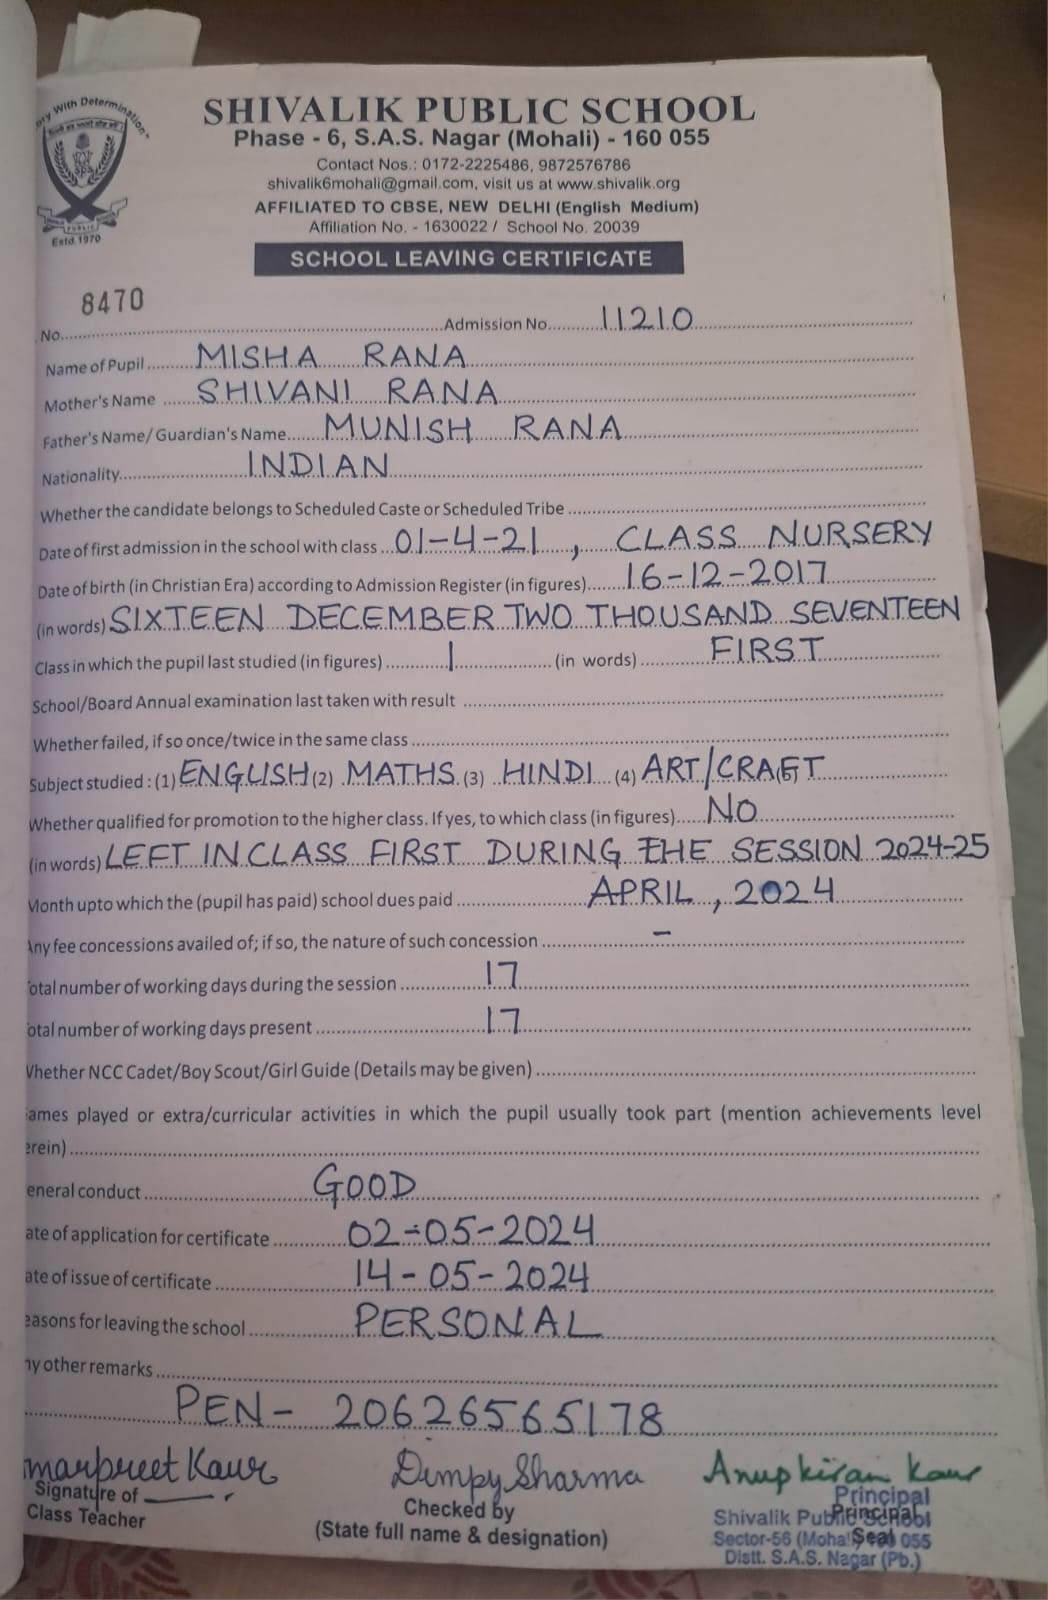 ry With Determination"
Estd. 1970
SHIVALIK PUBLIC SCHOOL
Phase - 6, S.A.S. Nagar (Mohali) - 160 055
Contact Nos.: 0172-2225486, 9872576786
shivalik6mohali@gmail.com, visit us at www.shivalik.org
AFFILIATED TO CBSE, NEW DELHI (English Medium)
Affiliation No. - 1630022 / School No. 20039
SCHOOL LEAVING CERTIFICATE
8470
. No. Admission No. 11210
Name of Pupil MISHA RANA
Mother's Name SHIVANI RANA
Father's Name/ Guardian's Name MUNISH RANA
Nationality INDIAN
Whether the candidate belongs to Scheduled Caste or Scheduled Tribe
Date of first admission in the school with class 01-4-21, CLASS NURSERY
Date of birth (in Christian Era) according to Admission Register (in figures) 16-12-2017
(in words) SIXTEEN DECEMBER TWO THOUSAND SEVENTEEN
Class in which the pupil last studied (in figures) 1 (in words) FIRST
School/Board Annual examination last taken with result
Whether failed, if so once/twice in the same class
Subject studied : (1) ENGLISH (2) MATHS (3) HINDI (4) ART/CRAFT (5)
Whether qualified for promotion to the higher class. If yes, to which class (in figures) NO
(in words) LEFT IN CLASS FIRST DURING THE SESSION 2024-25
Month upto which the (pupil has paid) school dues paid APRIL, 2024
Any fee concessions availed of; if so, the nature of such concession -
otal number of working days during the session 17
otal number of working days present 17
Whether NCC Cadet/Boy Scout/Girl Guide (Details may be given)
ames played or extra/curricular activities in which the pupil usually took part (mention achievements level
erein)
eneral conduct GOOD
ate of application for certificate 02-05-2024
ate of issue of certificate 14-05-2024
easons for leaving the school PERSONAL
ny other remarks
PEN- 20626565178
marpreet Kaur Dimpy Sharma Anupkiran Kaur
Signature of
Class Teacher
Checked by
(State full name & designation)
Principal
Seal
Principal
Shivalik Public School
Sector-56 (Mohali) 055
Distt. S.A.S. Nagar (Pb.)